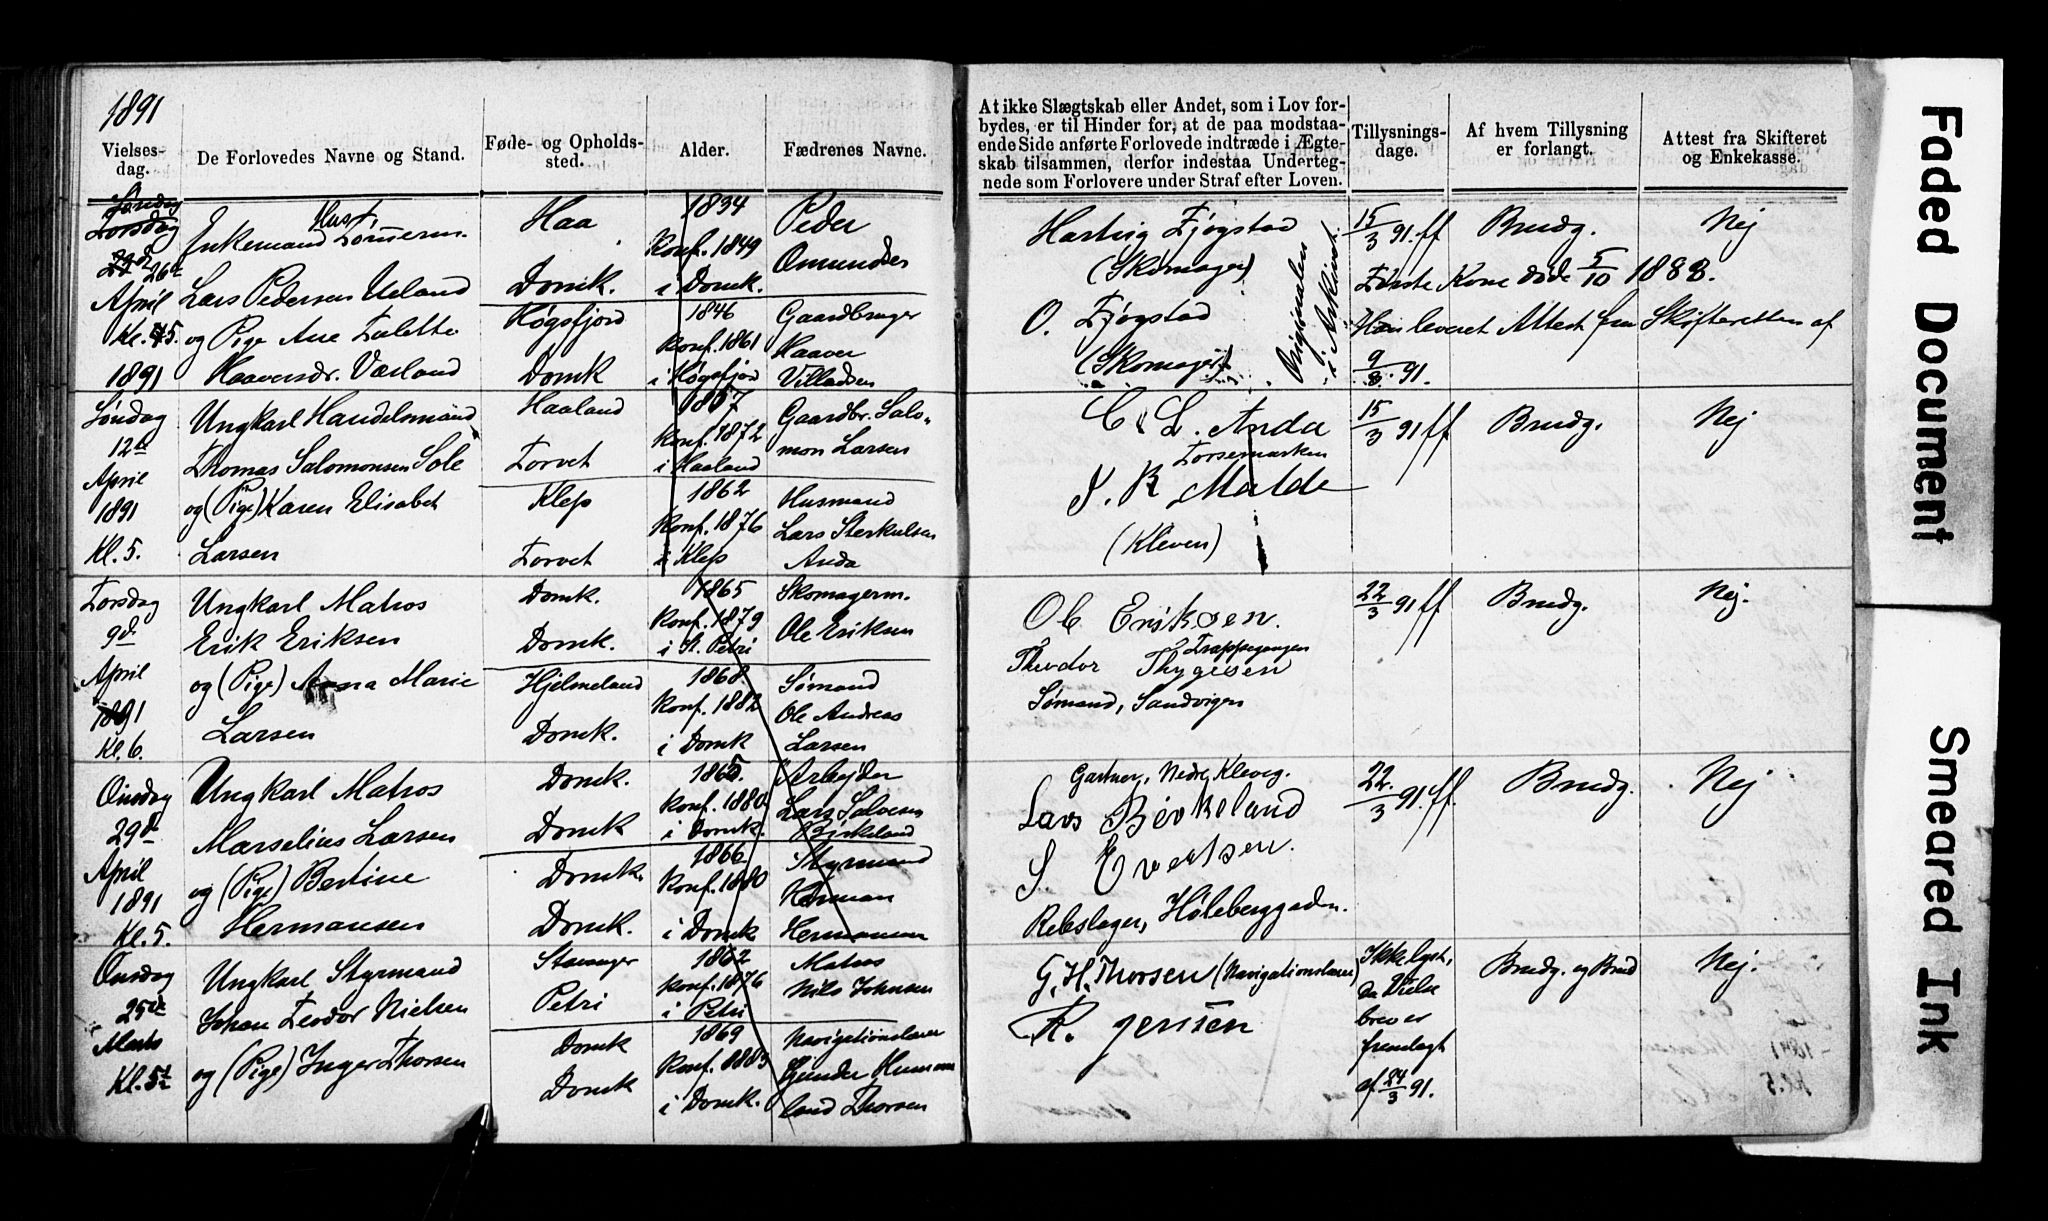 1891
Vielses-
dag.
De Forlovedes Navne og Stand.
Føde- og Opholds-
sted.
Alder.
Fædrenes Navne.
At ikke Slægtskab eller Andet, som i Lov for-
bydes, er til Hinder for, at de paa modstaa-
ende Side anførte Forlovede indtræde i Ægte-
skab tilsammen, derfor indestaa Underteg-
nede som Forlovere under Straf efter Loven.
Tillysnings-
dage.
Af hvem Tillysning
er forlangt.
Attest fra Skifteret
og Enkekasse.
Torsdag
26de
April
Kl. 5.
1891
Enkemand
Lars Pedersen Ueland
og Pige Ane Talette
Haaversdr. Vasland
Haa
Domk.
Høgsfjord
Domk
1834
Konf. 1849
i Domk.
1846
Konf. 1861
i Høgsfjord
Peder
Omundsen
Gaardbruger
Haaver
Villadsen
Hartvig Tjøgstad
(Skomager)
O. Tjøgstad
(Skomager)
Originalen
i Arkivet
15/3 91. ff
Brudg.
Nej
Første Kone døde 5/10 1888.
Han leveret Attest fra Skifteretten af
9/3. 91.
Søndag
12te
April
1891
Kl. 5.
Ungkarl Handelsmand
Thomas Salomonsen Sole
og (Pige) Karen Elisabet
Larsen
Haaland
Torvet
Klep
Torvet
1857
Konf. 1872
i Haaland
1862
Konf. 1876
i Klep
Gaardbr. Salo-
mon Larsen
Husmand
Lars Sterkulsen
Anda
C. L. Anda
Torsemarken
S. R Malde
(Kleven)
15/3 91 ff
Brudg.
Nej
Torsdag
9de
April
1891
Kl. 6.
Ungkarl Matros
Erik Eriksen
og (Pige) Anna Marie
Larsen
Domk.
Domk.
Hjelmeland
Domk.
1865
Konf. 1879
i St. Petri
1868.
Konf. 1882
i Domk
Skomagerm.
Ole Eriksen
Sømand
Ole Andreas
Larsen
Ole Eriksen.
Trappegangen
Theodor Thygesen
Sømand, Sandvigen
22/3 91 ff
Brudg.
Nej.
Onsdag
29de
April
1891
Kl. 5.
Ungkarl Matros
Marselius Larsen
og (Pige) Bertine
Hermansen
Domk.
Domk
Domk.
Domk.
1865.
Konf. 1880
i Domk.
1866
Konf. 1880
i Domk
Arbejder
Lars Salvesen
Birkeland
Styrmand
Herman
Hermansen
Gartner, Nedre Klevg.
Lars Birkeland
S Evertsen.
Rebslager, Høleberggaden.
22/3 91. ff.
Brudg.
Nej
Onsdag
25de
Marts
Kl. 5½
Ungkarl Styrmand
Johan Teodor Nielsen
og (Pige) Inger Thorsen
Stavanger
Petri
Domk
Domk
1862
Konf. 1876
i Petri
1869
Konf. 1883
i Domk.
Matros
Nils Johnsen
Navigationslærer
Gunder Hummel
land Thorsen
G. H. Thorsen (Navigationslærer)
R. Jensen
Ikke lyst,
da Vielse
brev er
fremlagt
af 24/3 91.
Brudg. og Brud
Nej.
Faded Document
Smeared Ink